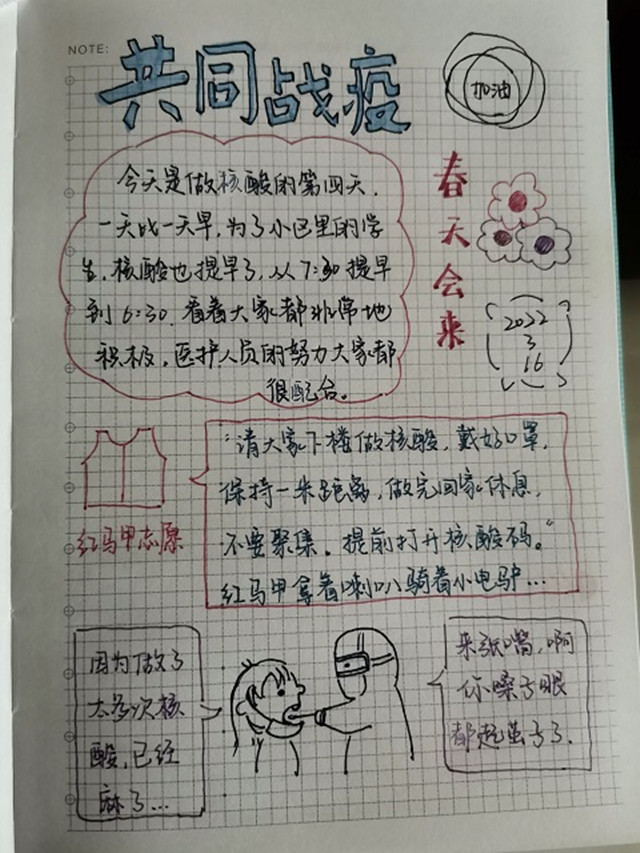 NOTE:
共同战疫
加油
今天是做核酸的第四天,
一天比一天早,为了小区里的学
生,核酸也提早了,从7:30提早
到6:30.看着大家都非常地
积极,医护人员的努力大家都
很配合。
春天会来
2022
3
16
红马甲志愿
“请大家下楼做核酸,戴好口罩,
保持一米距离,做完回家休息,
不要聚集。提前打开核酸码。”
红马甲拿着喇叭骑着小电驴...
因为做了
太多次核
酸,已经
麻了...
来张嘴,啊
你嗓子眼
都起茧子了.